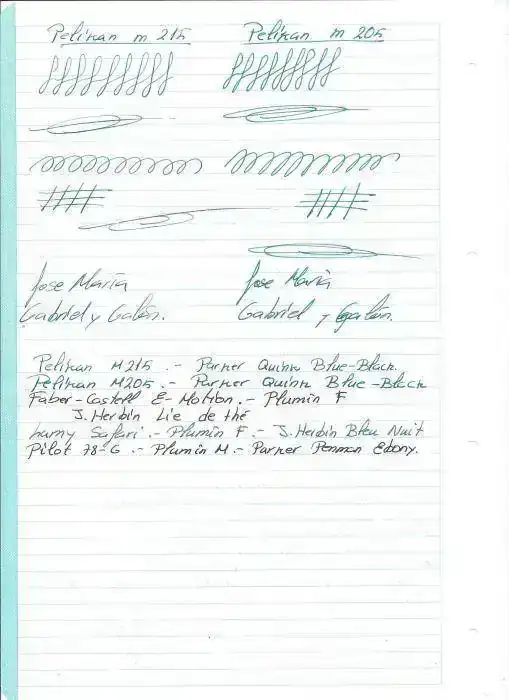 Pelikan m 215 Pelikan m 205
Jose María Jose María
Gabriel y Galán. Gabriel y Galán.
Pelikan M215 .- Parker Quink Blue-Black.
Pelikan M205 .- Parker Quink Blue-Black
Faber-Castell E-Motion.- Plumín F
J. Herbin Lie de thé
Lamy Safari.- Plumín F.- J. Herbin Bleu Nuit
Pilot 78-G .- Plumín M.- Parker Penman Ebony.